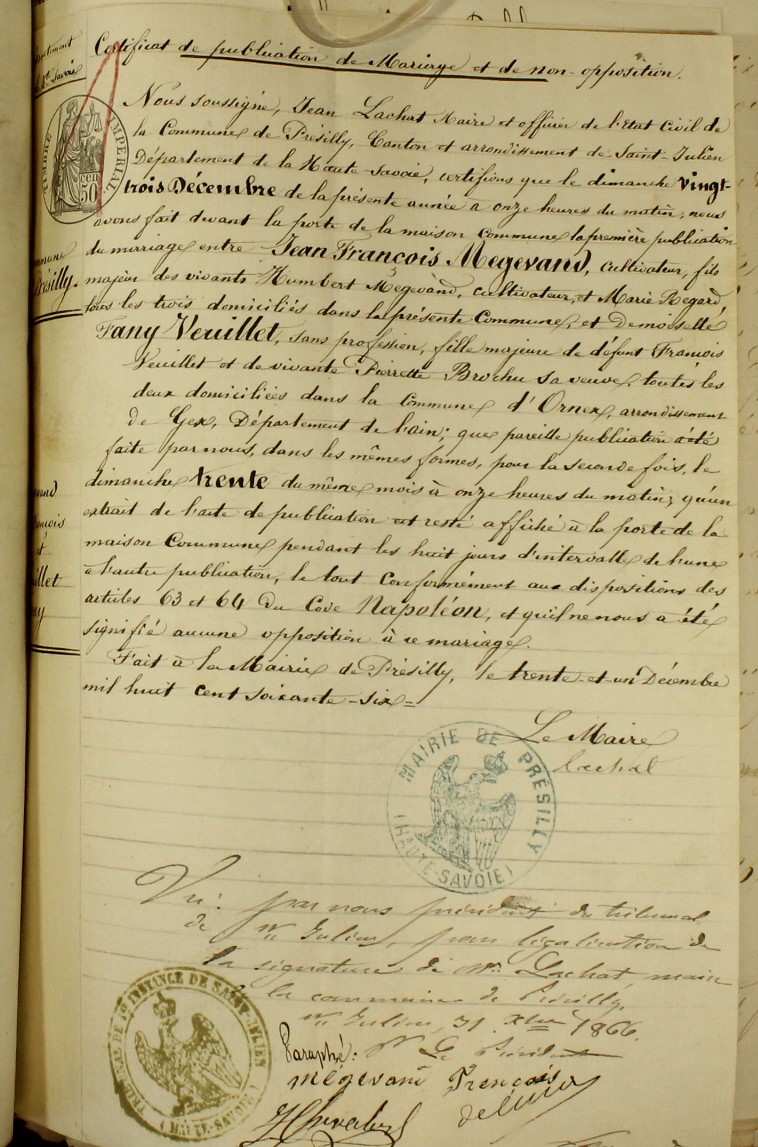 Certificat de publication de Mariage et de non-opposition.
Nous soussigné, Jean Lachat Maire et officier de l'Etat Civil de
la Commune de Présilly, Canton et arrondissement de Saint-Julien
Département de la Haute-Savoie, certifions que le dimanche vingt-
trois Décembre de la présente année à onze heures du matin, nous
avons fait devant la porte de la maison commune la première publication
du mariage entre Jean François Mégevand, cultivateur, fils
majeur des vivants Humbert Mégevand, cultivateur, et Marie Regard
tous les trois domiciliés dans la présente Commune, et Demoiselle
Fany Veuillet, sans profession, fille majeure de défunt François
Veuillet et de vivante Pierrette Brochu sa veuve, toutes les
deux domiciliées dans la Commune d'Ornex, arrondissement
de Gex, Département de l'ain; que pareille publication a été
faite par nous, dans les mêmes formes, pour la seconde fois, le
dimanche trente du même mois à onze heures du matin; qu'un
extrait de l'acte de publication est resté affiché à la porte de la
maison Commune pendant les huit jours d'intervalle de l'une
à l'autre publication, le tout conformément aux dispositions des
articles 63 et 64 du Code Napoléon, et qu'il ne nous a été
signifié aucune opposition à ce mariage.
Fait à la Mairie de Présilly, le trente-et-un Décembre
mil huit cent soixante-six=
Le Maire
Lachat
MAIRIE DE PRÉSILLY
(HAUTE-SAVOIE)
Vu par nous président du tribunal
de St Julien, pour légalisation de
la signature de Mr Lachat, maire
de la commune de Présilly.
St Julien, 31 Xbre 1866.
Le Président
Paraphé:
Mégevand François
TIMBRE IMPERIAL
50 cen
TRIBUNAL DE 1re INSTANCE DE SAINT-JULIEN
(HAUTE-SAVOIE)